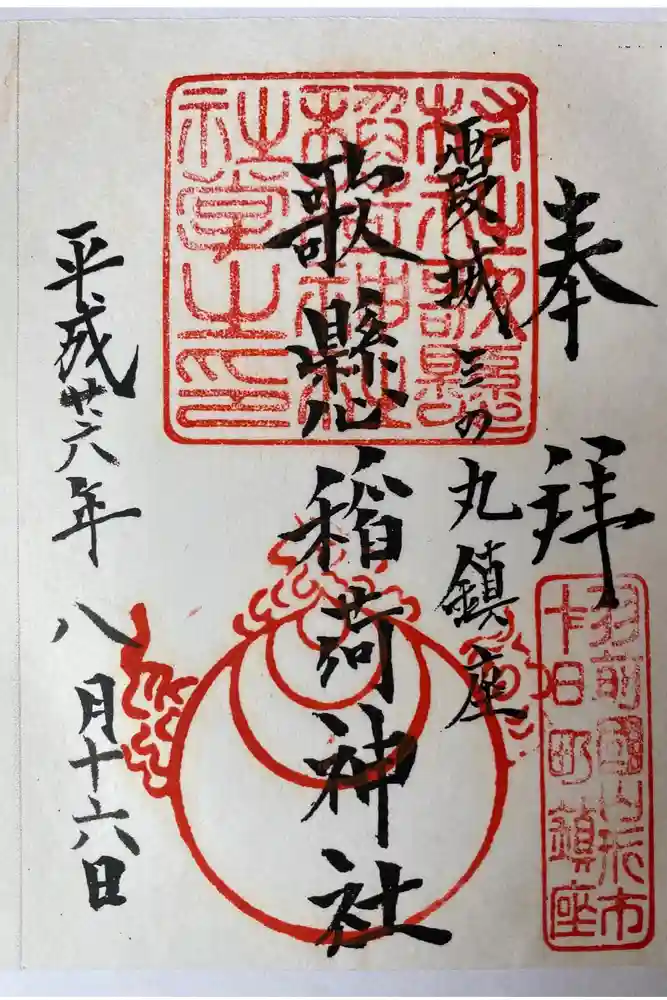 奉拝
霞城三の丸鎮座
歌懸稲荷神社
平成廿六年八月十六日
村社歌縣
稲荷神社
社掌之印
羽前國山形市
十日町鎮座